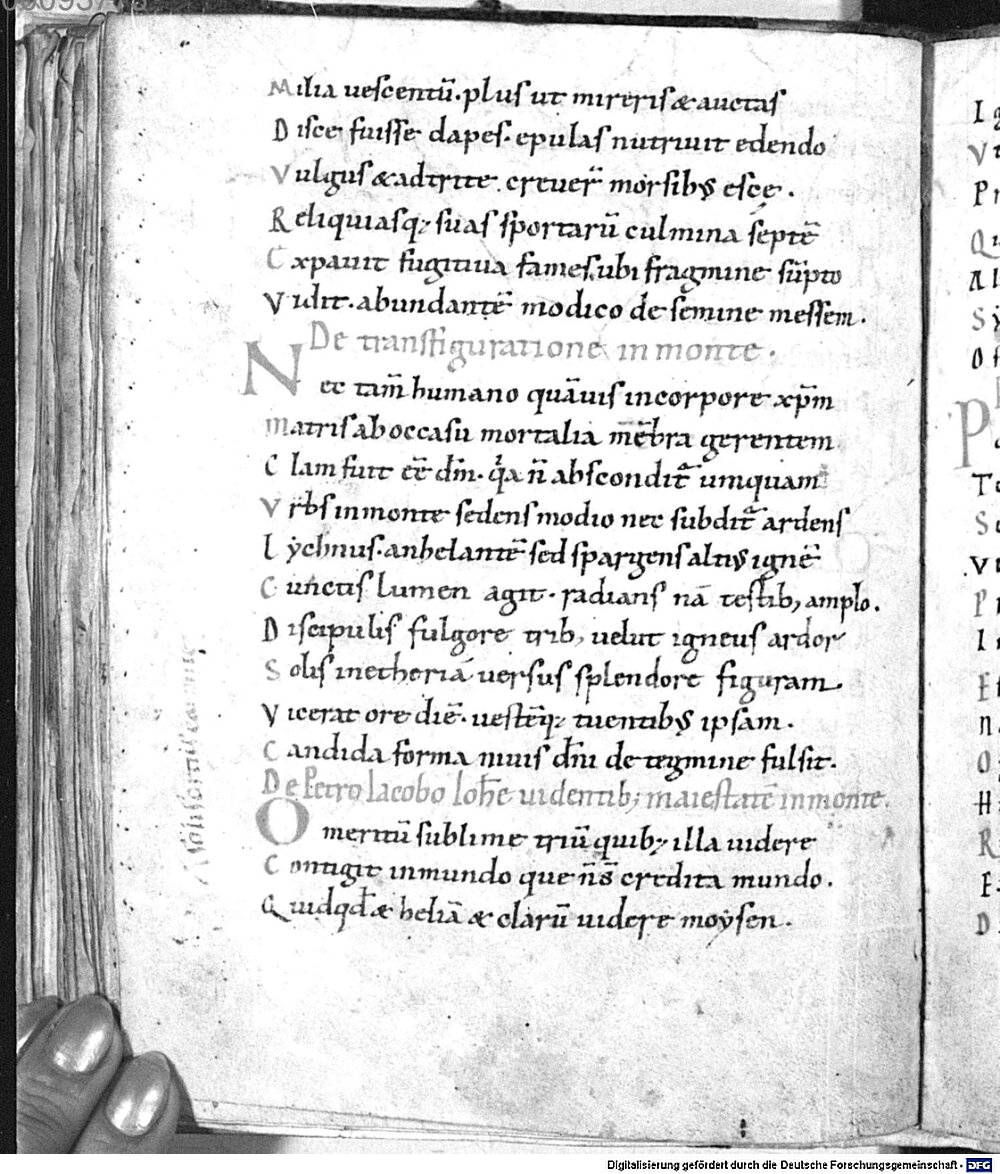 Milia uescentū. plus ut mireris & auctas
Disce fuisse dapes. epulas nutriuit edendo
Vulgus & adtrite creuer̄ morsibꝰ esce.
Reliquiasq; suas sportarū culmina septē
Expauit fugitiua fames. ubi fragmine sūpto
Vidit. abundantē modico de semine messem.
De transfiguratione in monte.
Nec tam̄ humano quāuis in corpore xp̄m
Matris ab occasu mortalia mēbra gerentem
Clam fuit eē dm̄. q̇a n̄ abscondit᷑ umquam
Vrbs in monte sedens modio nec subdit᷑ ardens
Lẏchnus. anhelantē sed spargens altiꝰ ignē
Cunctis lumen agit. radians nā testib; amplo.
Discipulis fulgore trib; uelut igneus ardor
Solis in etheriā uersus splendore figuram.
Vicerat ore diē. uestēq; tuentibꝰ ipsam.
Candida forma niuis dn̄i de tegmine fulsit.
De Petro Iacobo Ioh̄e uidentib; maiestatē in monte.
O meritū sublime triū quib; illa uidere
Contigit in mundo que n̄ s̄ credita mundo.
Quid qđ & heliā & clarū uidere moẏsen.
Digitalisierung gefördert durch die Deutsche Forschungsgemeinschaft - DFG